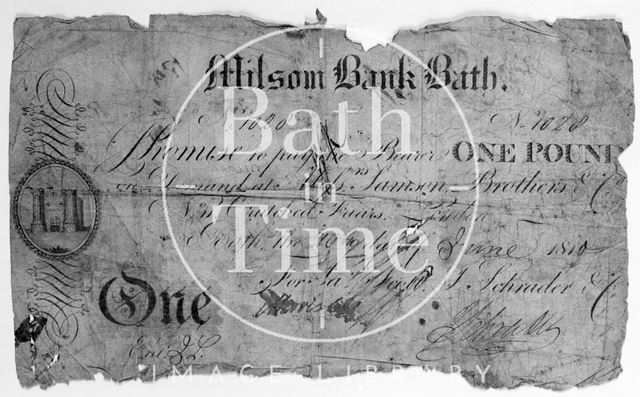 Milsom Bank Bath.
No. 1028 No. 1028
Promise to pay the Bearer ONE POUND
on Demand at Samson Brothers & Co
Crutched Friars, London
Bath, the day of June 1810
For J. Schrader & Co
One
Bath
in
Time
IMAGE LIBRARY